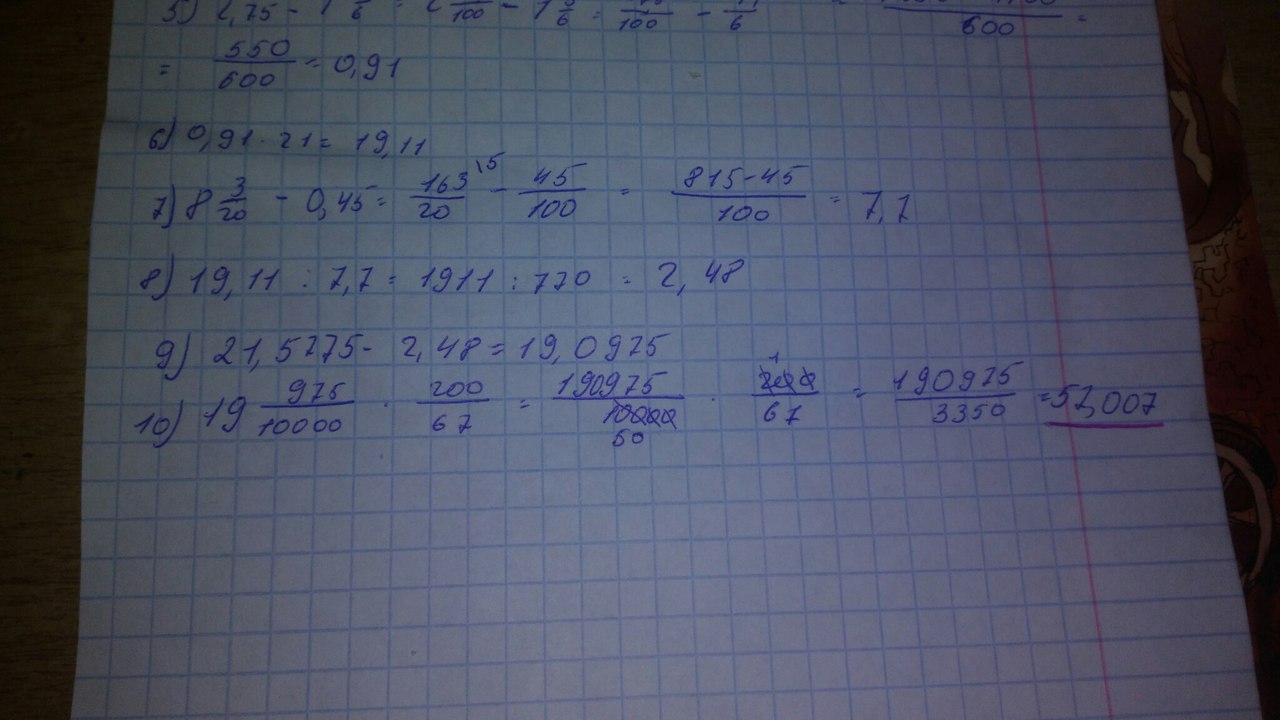 5) 2,75 - 1 5/6 = 2 /100 - 1 5/6 = /100 - 11/6 /600 =
= 550/600 = 0,91
6) 0,91 · 21 = 19,11
7) 8 3/20 - 0,45 = 163\5/20 - 45/100 = 815-45/100 = 7,7
8) 19,11 : 7,7 = 1911 : 770 = 2,48
9) 21,5775 - 2,48 = 19,0975
10) 19 975/10000 · 200/67 = 190975/10000 50 · 200 1/67 = 190975/3350 = 57,007